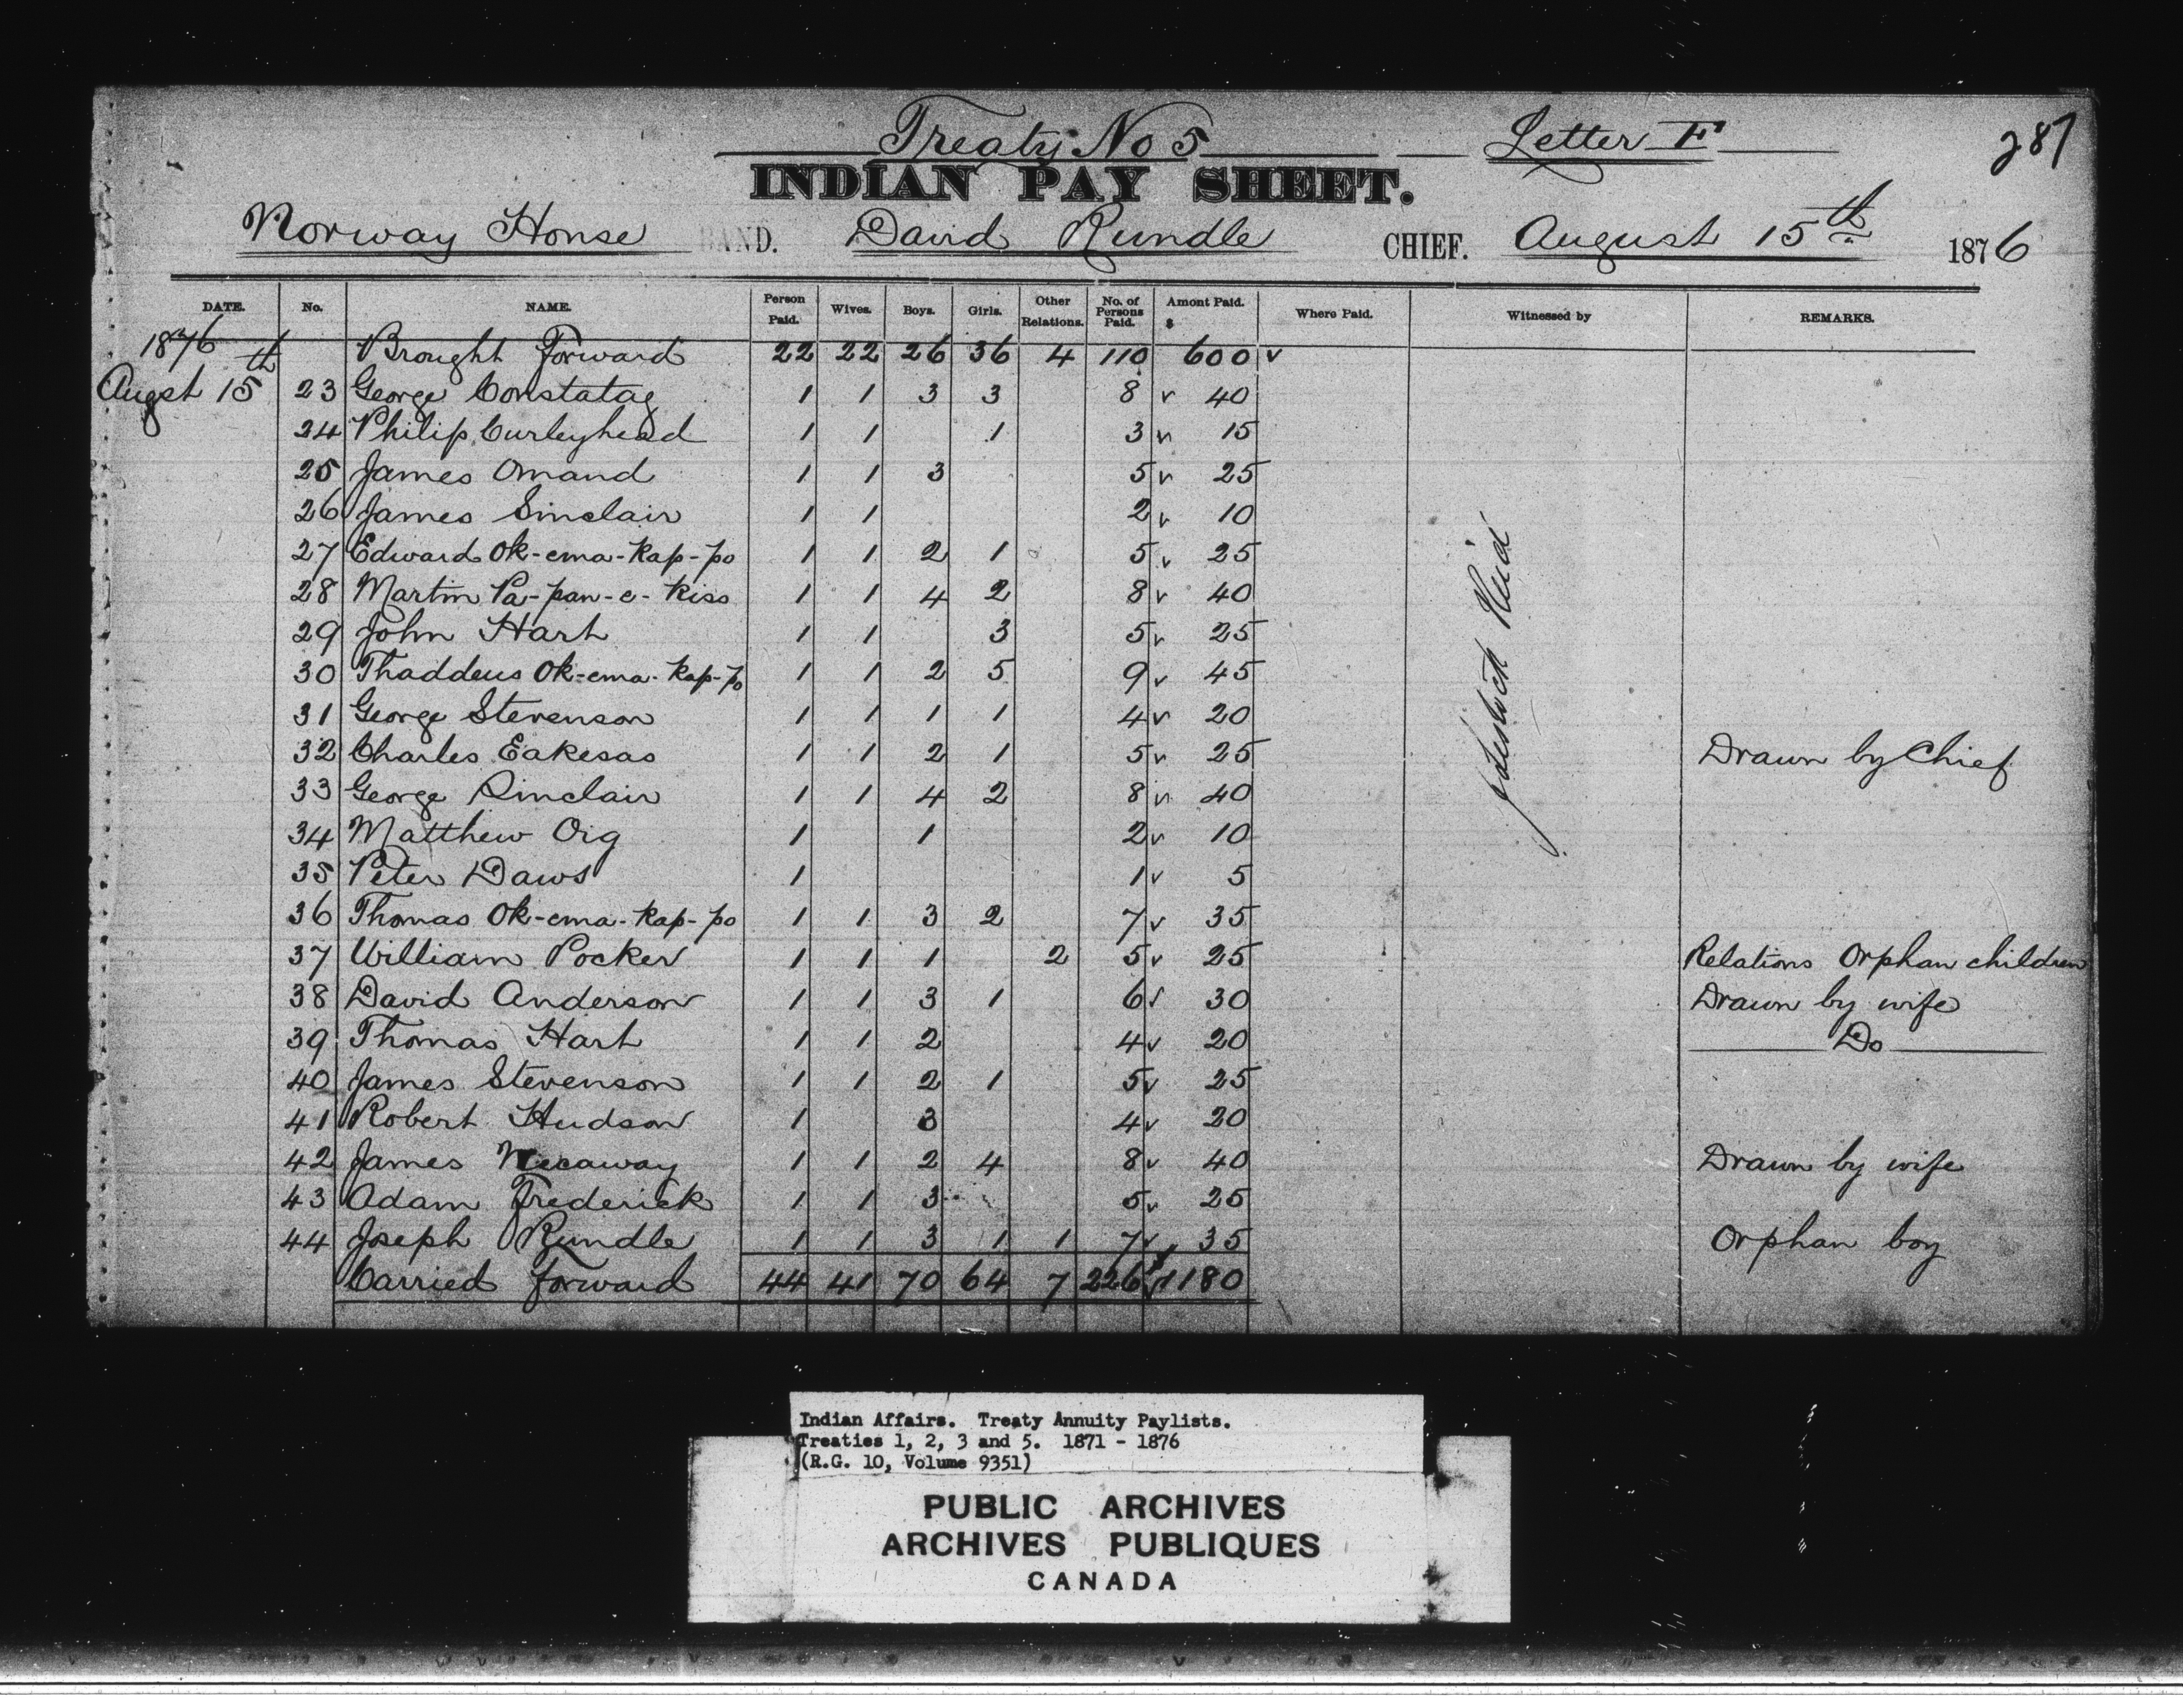 Treaty No 5 Letter F 287
INDIAN PAY SHEET.
Norway House BAND. David Rundle CHIEF. August 15th 1876
DATE. No. NAME. Person Paid. Wives. Boys. Girls. Other Relations. No. of Persons Paid. Amont Paid. $ Where Paid. Witnessed by REMARKS.
1876 Brought Forward 22 22 26 36 4 110 600 v
Augst 15th 23 George Constatag 1 1 3 3 8 v 40
24 Philip Curleyhead 1 1 1 3 v 15
25 James Omand 1 1 3 5 v 25
26 James Sinclair 1 1 2 v 10
27 Edward Ok-ema-Kap-po 1 1 2 1 5 v 25
28 Martin Pa-pan-e-Kiss 1 1 4 2 8 v 40
29 John Hart 1 1 3 5 v 25
30 Thaddeus Ok-ema-Kap-po 1 1 2 5 9 v 45
31 George Stevenson 1 1 1 1 4 v 20
32 Charles Eakesas 1 1 2 1 5 v 25 Drawn by Chief
33 George Sinclair 1 1 4 2 8 v 40
34 Matthew Oig 1 1 2 v 10
35 Peter Daws 1 1 v 5
36 Thomas Ok-ema-Kap-po 1 1 3 2 7 v 35
37 William Pocker 1 1 1 2 5 v 25 Relations Orphan children
38 David Anderson 1 1 3 1 6 v 30 Drawn by wife
39 Thomas Hart 1 1 2 4 v 20 Do
40 James Stevenson 1 1 2 1 5 v 25
41 Robert Hudson 1 3 4 v 20
42 James 1 1 2 4 8 v 40 Drawn by wife
43 Adam Frederick 1 1 3 5 v 25
44 Joseph Rundle 1 1 3 1 1 7 v 35 Orphan boy
Carried forward 44 41 70 64 7 226 v 1180
Reid
Indian Affairs. Treaty Annuity Paylists.
Treaties 1, 2, 3 and 5. 1871 - 1876
(R.G. 10, Volume 9351)
PUBLIC ARCHIVES
ARCHIVES PUBLIQUES
CANADA